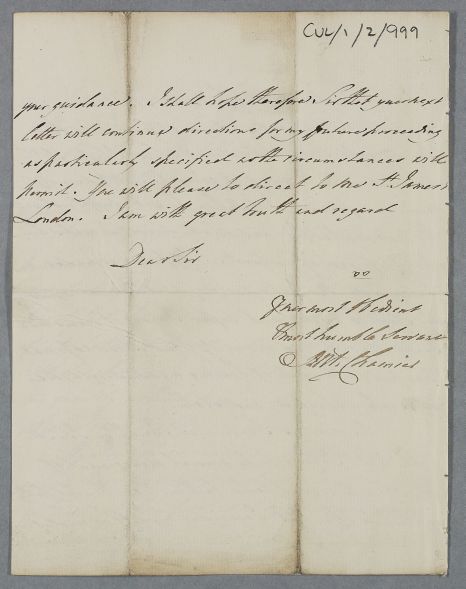 CUL/1/2/999
your guidance. I shall hope therefore Sir that your next
letter will continue directions for my future proceeding
as particularly specified as the circumstances will
permit. You will please to direct to me St. James's
London. I am with great truth and regard
Dear Sir
Your most Obedient
& most humble Servant
Ant. Chamier